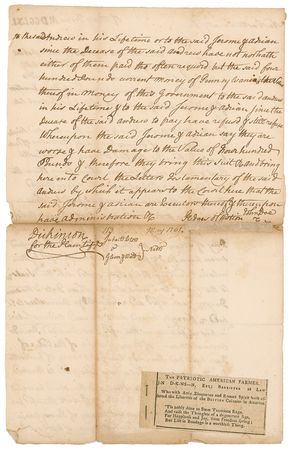 to the said Andrew in his Lifetime or to the said Jerome & Adrian
since the Decease of the said Andrew have not nor hath
either of them paid the aforesaid but the said four
hundred Pounds current money of Pennsylvania
thereof in money of this Government to the said Andrew
in his Lifetime & to the said Jerome & Adrian since the
Decease of the said Andrew to pay have refused & still refuse
Whereupon the said Jerome & Adrian say they are
worse & have Damage to the Value of Four hundred
Pounds & therefore they bring this Suit &c And bring
here into Court the Letters Testamentary of the said
Andrew by which it appears to the Court here that the
said Jerome & Adrian are Executors thereof & thereupon
have Administration &c
John Doe
Dickinson
for the Plaintiffs
May 1761
THE PATRIOTIC AMERICAN FARMER.
J-N D-K-NS-N, Esq; BARRISTER at LAW
Who with Attic Eloquence and Roman Spirit hath asserted
the Liberties of the BRITISH Colonies in America.
'Tis nobly done, to Stem Taxations Rage,
And raise the Thoughts of a degen'rate Age,
For Happiness and Joy, from Freedom spring;
But Life in Bondage is a worthless Thing.